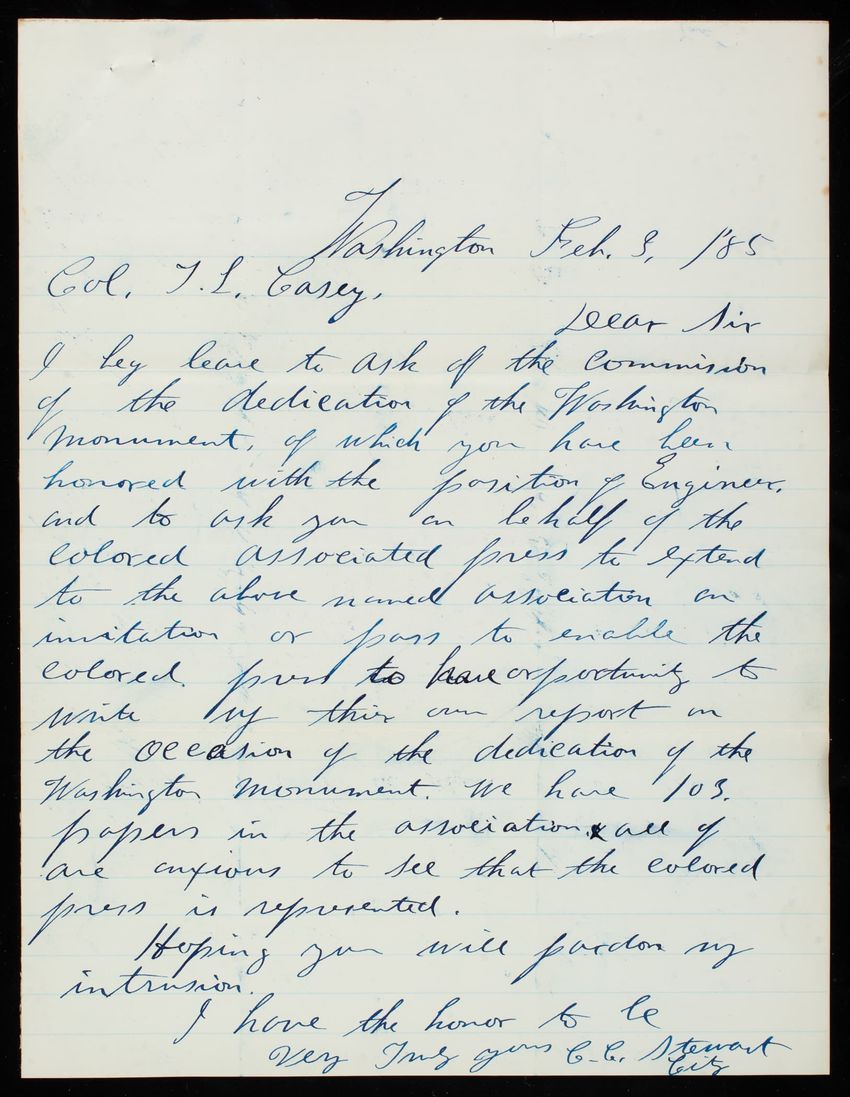 Washington Feb. 3, 1885
Col. T. L. Casey,
Dear Sir
I beg leave to ask of the commission
of the dedication of the Washington
Monument, of which you have been
honored with the position of Engineer.
and to ask you on behalf of the
colored associated press to extend
to the above named association an
invitation or pass to enable the
colored press to have opportunity to
write up thier own report on
the occasion of the dedication of the
Washington Monument. We have 103.
papers in the association, & all of
are anxious to see that the colored
press is represented.
Hoping you will pardon my
intrusion.
I have the honor to be
Very Truly yours C. C. Stewart
City